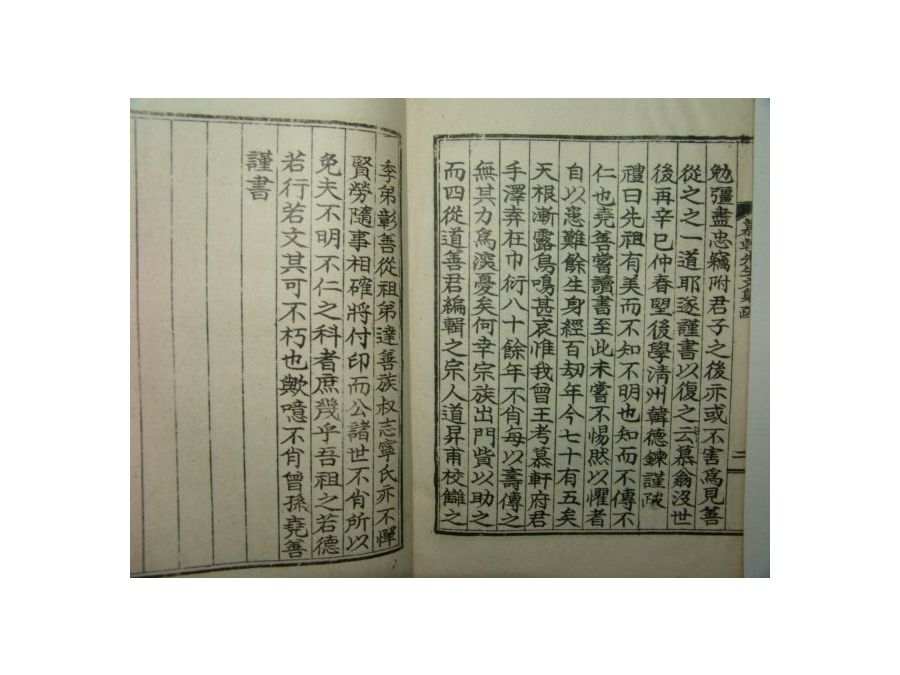 勉彊盡忠竊附君子之後亦或不害爲見善
從之之一道耶遂謹書以復之云慕翁沒世
後再辛巳仲春朢後學淸州韓德鍊謹跋
禮曰先祖有美而不知不明也知而不傳不
仁也堯善嘗讀書至此未嘗不惕然以懼者
自以患難餘生身經百劫年今七十有五矣
天根漸露鳥鳴甚哀惟我曾王考慕軒府君
手澤弆在巾衍八十餘年不肖每以壽傳之
無其力爲深憂矣何幸宗族出門貲以助之
而四從道善君編輯之宗人道昇甫校讎之
季弟彰善從祖弟達善族叔志寧氏亦不憚
賢勞隨事相確將付印而公諸世不肖所以
免夫不明不仁之科者庶幾乎吾祖之若德
若行若文其可不朽也歟噫不肖曾孫堯善
謹書
二